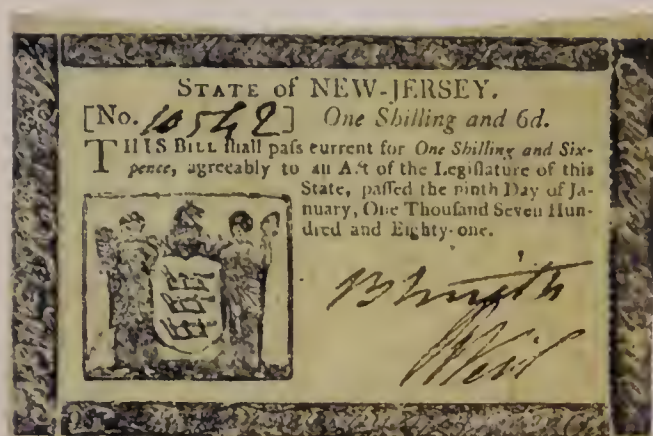 STATE of NEW-JERSEY.
[No. 10542] One Shilling and 6d.
THIS BILL ſhall paſs current for One Shilling and Six-
pence, agreeably to an Act of the Legiſlature of this
State, paſſed the ninth Day of Ja-
nuary, One Thouſand Seven Hun-
dred and Eighty-one.
B Smith